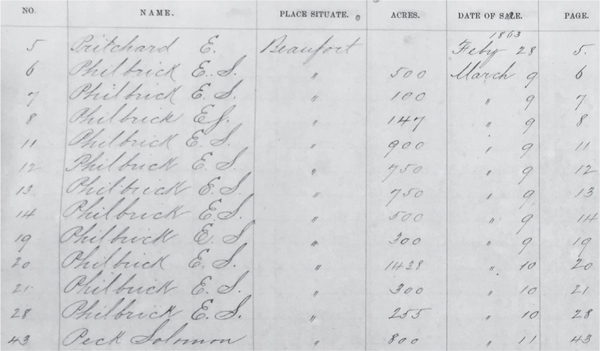 NO. NAME. PLACE SITUATE. ACRES. DATE OF SALE. PAGE.
1863
5 Pritchard E. Beaufort Feby 28 5.
6 Philbrick E. S. " 500 March 9 6
7 Philbrick E. S. " 100 " 9 7
8 Philbrick E S. " 147 " 9 8
11 Philbrick E. S. " 900 " 9 11
12 Philbrick E. S. " 750 " 9 12
13 Philbrick E. S. " 750 " 9 13
14 Philbrick E. S. " 500 " 9 14
19 Philbrick E. S. " 300 " 9 19
20 Philbrick E. S. " 1428 " 10 20
21 Philbrick E. S. " 300 " 10 21
28 Philbrick E. S. " 255 " 10 28
43 Peck Solomon " 800 " 11 43